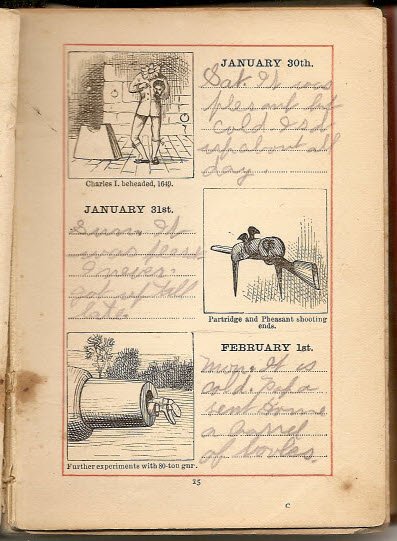 JANUARY 30th.
Sat. It was
plesant but
cold. I
up about all
day.
Charles I. beheaded, 1649.
JANUARY 31st.
Sun. It
was
I never
got up till
late.
Partridge and Pheasant shooting
ends.
FEBRUARY 1st.
Mon. It is
cold. Papa
sent Home
a barrel
of
Further experiments with 80-ton gun.
15
C